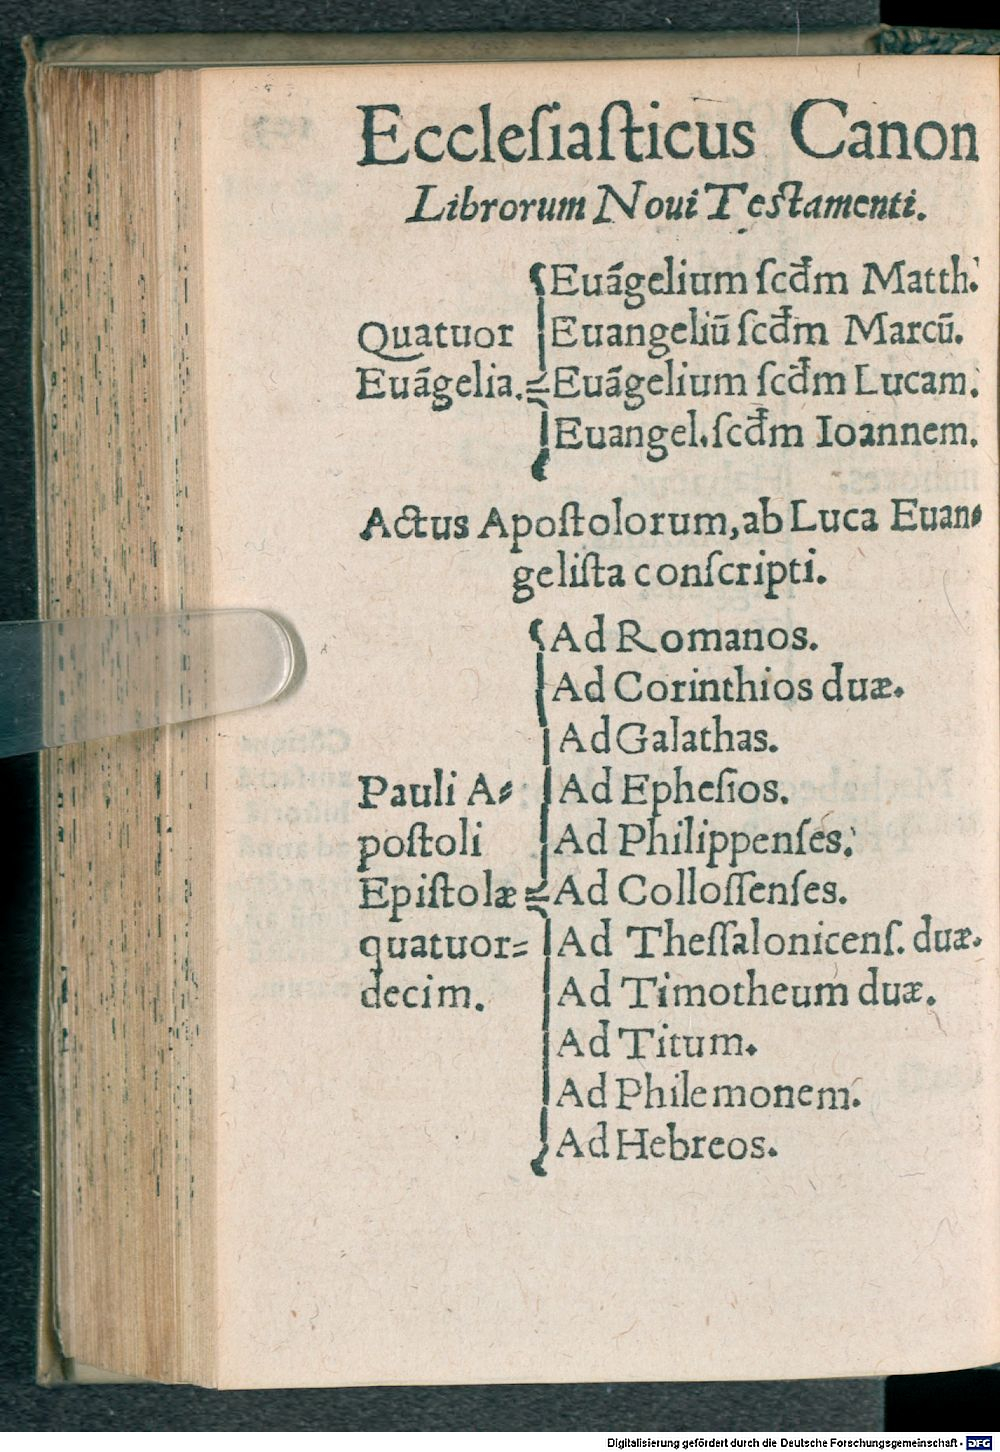 Eccleſiaſticus Canon
Librorum Noui Teſtamenti.
Quatuor
Euãgelia.
Euãgelium ſcd̃m Matth.
Euangeliũ ſcd̃m Marcũ.
Euãgelium ſcd̃m Lucam.
Euangel. ſcd̃m Ioannem.
Actus Apoſtolorum, ab Luca Euan⸗
geliſta conſcripti.
Pauli A⸗
poſtoli
Epiſtolæ
quatuor⸗
decim.
Ad Romanos.
Ad Corinthios duæ.
Ad Galathas.
Ad Epheſios.
Ad Philippenſes.
Ad Colloſſenſes.
Ad Theſſalonicenſ. duæ.
Ad Timotheum duæ.
Ad Titum.
Ad Philemonem.
Ad Hebreos.
Digitalisierung gefördert durch die Deutsche Forschungsgemeinschaft - DFG